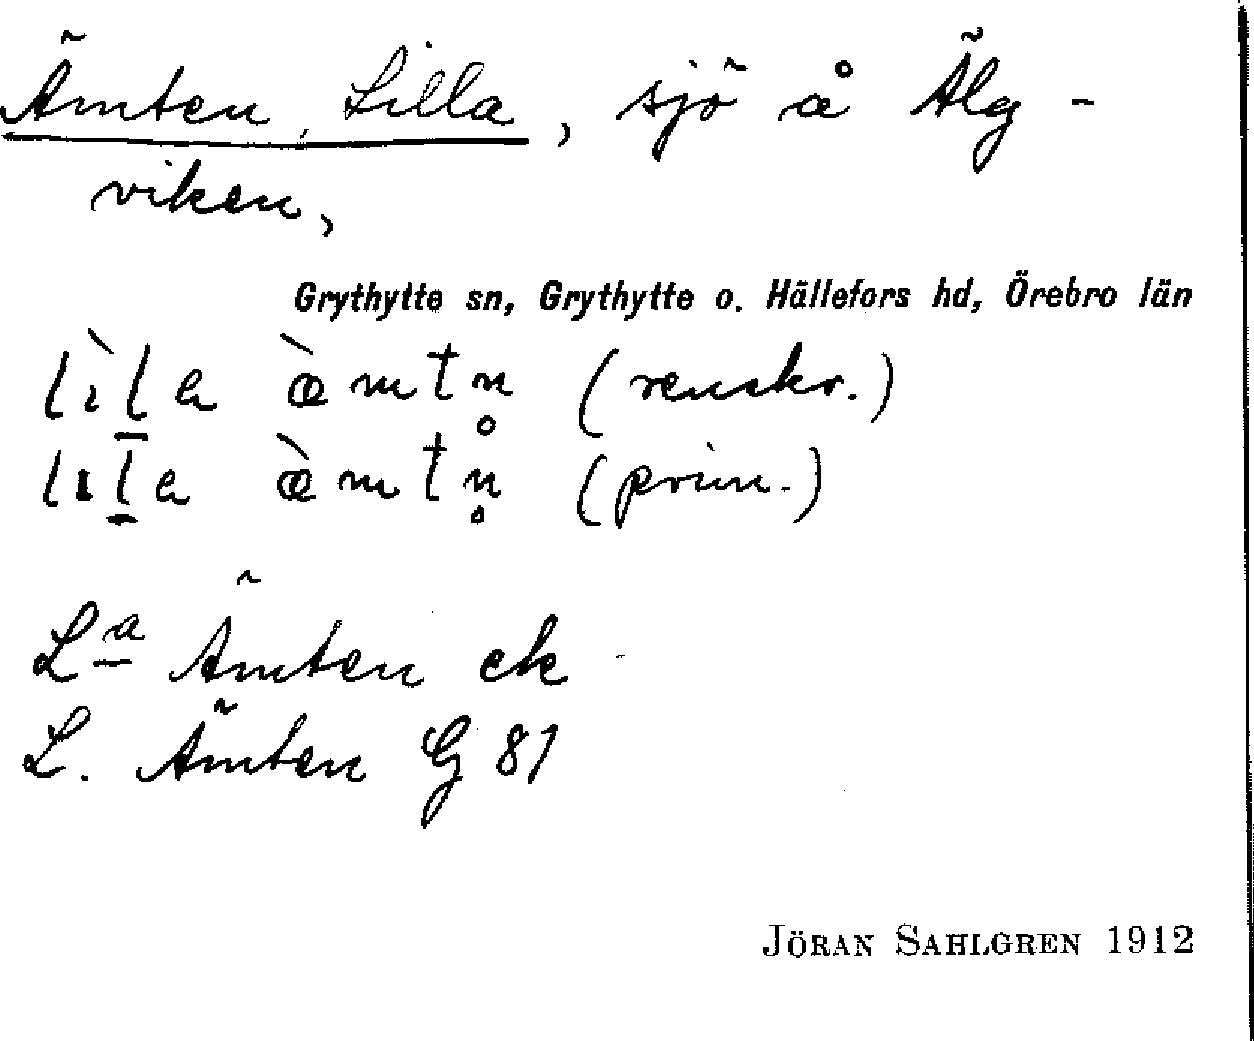 Ämten, Lilla, sjö å Älg-
viken,
Grythytte sn, Grythytte o. Hällefors hd, Örebro län
lìl̲a æ̀mtn̥ (renskr.)
lıl̲a æ̀mtn̥ (prim.)
Lª Ämten ek
L. Ämten G 81
JÖRAN SAHLGREN 1912